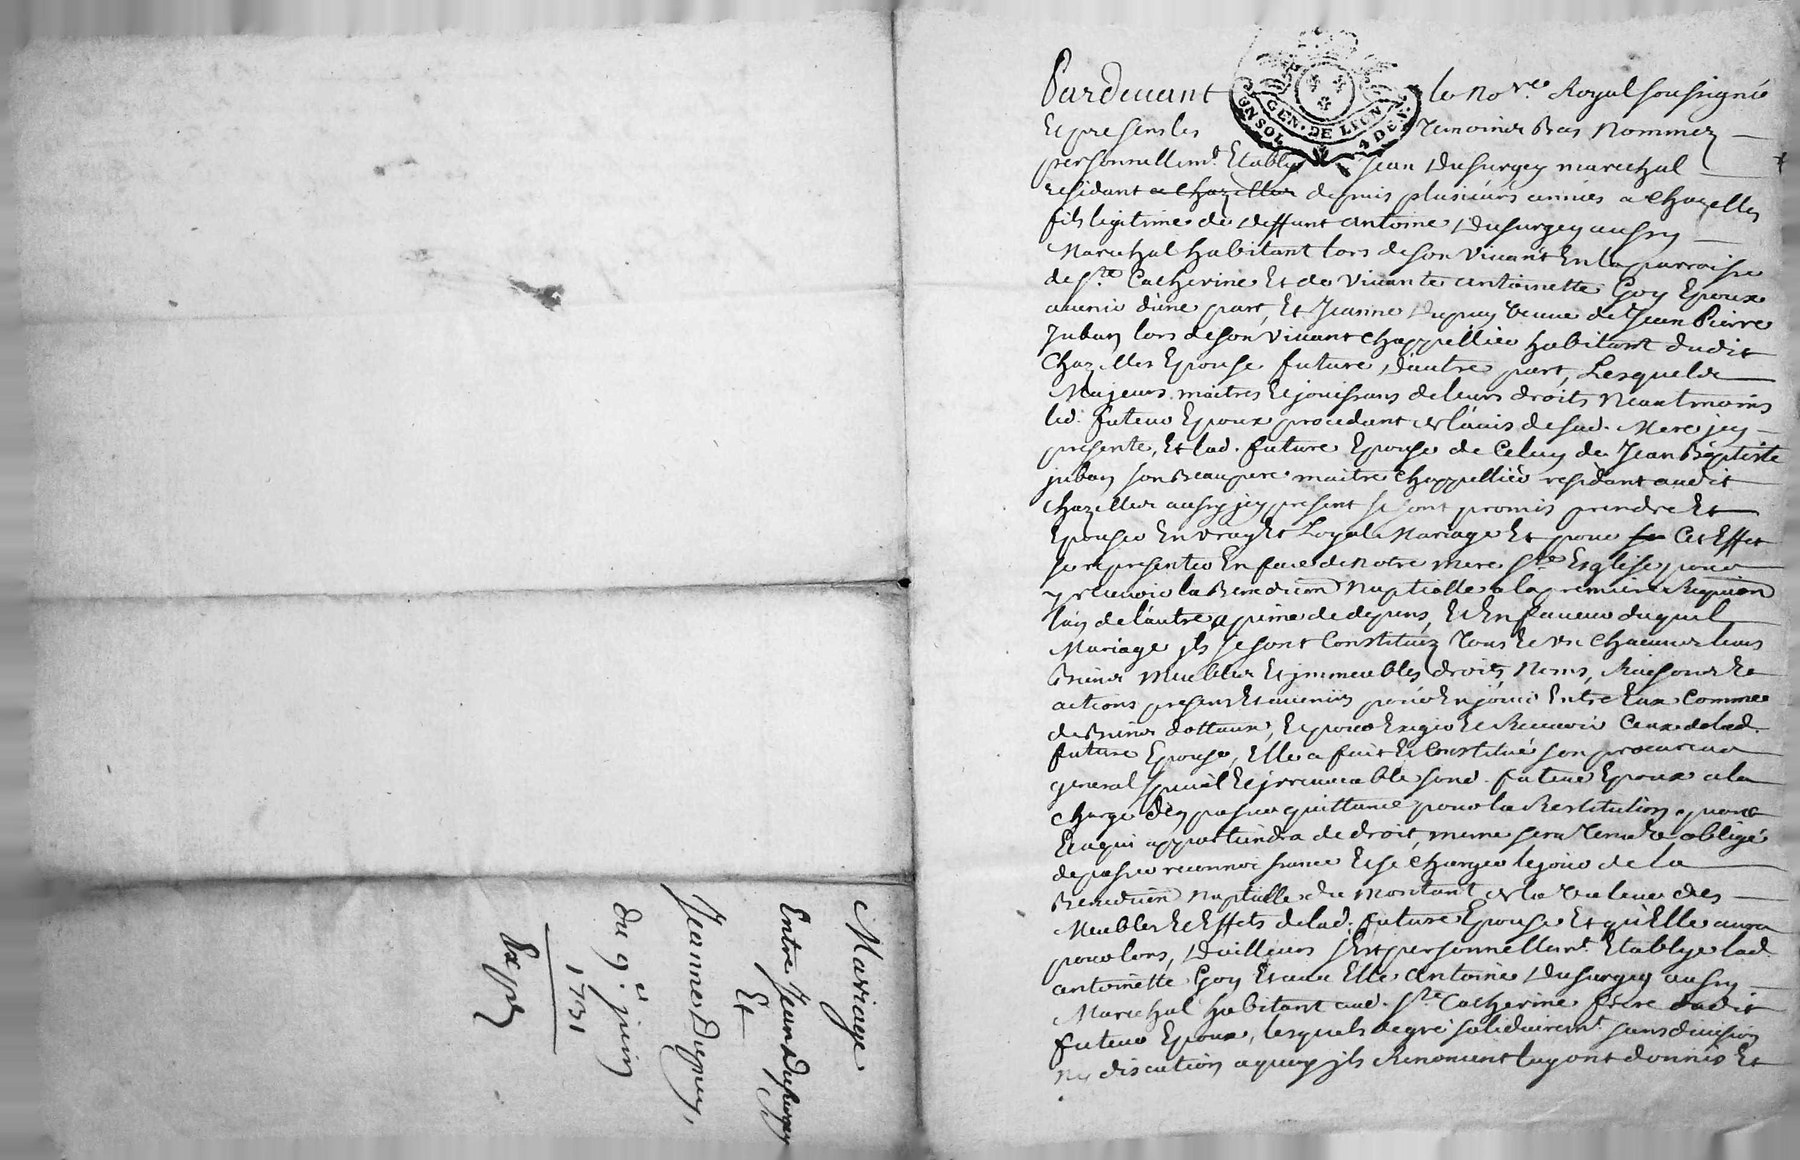 Mariage
Entre Jean Dusurgey
Et
Jeanne Dupuy,
du 9e. juin
1731
Exp.
GEN. DE LION
4 DEN.
Pardevant le No.re Royal soussigné
Et presens les temoins Bas Nommez
personnellemt. Etably Jean Dusurgey marechal
residant a chazelles depuis plusieurs années a chazelles
fils legitime de deffunt antoine Dusurgey aussy
Marechal habitant lors de son vivant En la parroisse
de Ste. Catherine Et de vivante antoinette Goy Epoux
avenir d'une part, Et Jeanne Dupuy veuve de Jean Pierre
Juban lors de son vivant chappellier habitant dudit
Chazelles Epouse future, d'autre part, Lesquels
Majeurs maitres Et jouissans de leurs droits Neantmoins
led. futeur Epoux procedant de l'avis de sad. Mere jcy
presente, Et lad. future Epouse de Celuy de Jean Baptiste
juban son Beaupere maitre chappellier residant audit
chazelles aussy jcy present se sont promis prendre Et
Epouser En vray Et Loyal Mariage Et pour Cet Effet
se representer En face de notre mere Ste Esglise, pour
y recevoir la Benediction Nuptialle a la premiere Requion
l'un de l'autre, a peine de depens, Et En faveur duquel
Mariage jls se sont Constituéz tous Et un chacuns leurs
Biens Meubles Et jmmeubles, droits, Noms, Raisons Et
actions presens Et avenirs pour En jouir Entre Eux Comme
de Biens dottaux, Et pour Exiger Et Recevoir Ceux de lad.
future Epouse, Elle a fait Et Constitué son procureur
general special Et jrrevocable sond. futeur Epoux a la
charge d'en passer quittance pour la Restitution a qui
Et a qui appartiendra de droit, meme sera tenu Et obligé
de passer reconnoissance Et se charger le jour de la
Benediction Nuptialle du Montant de la valeur des
Meubles Et Effets de lad. future Epouse Et qu'Elle aura
pour lors, D'ailleurs s'Est personnellemt. Etablye lad.
antoinette Goy Et avec Elle antoine Dusurgey aussy
Marechal habitant aud. Ste Catherine frere dudit
futeur Epoux, lesquels de gré solidairemt. sans division
Ny discution a quoy jls Renoncent luy ont donnés Et